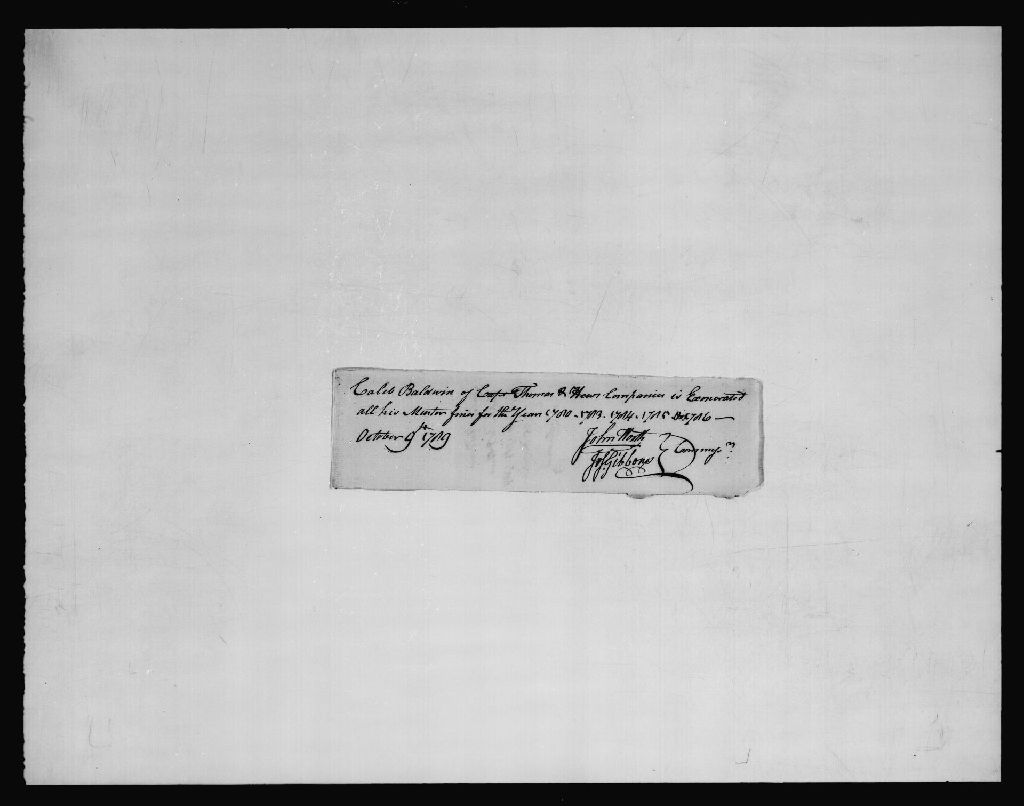 Caleb Baldwin of Capt Thomas & Companies is Exonerated
all his Muster fines for the Years 1780 - 1783 - 1784 - 1785 & 1786 —
October 9th 1789
John Jos Gibbons Commrs